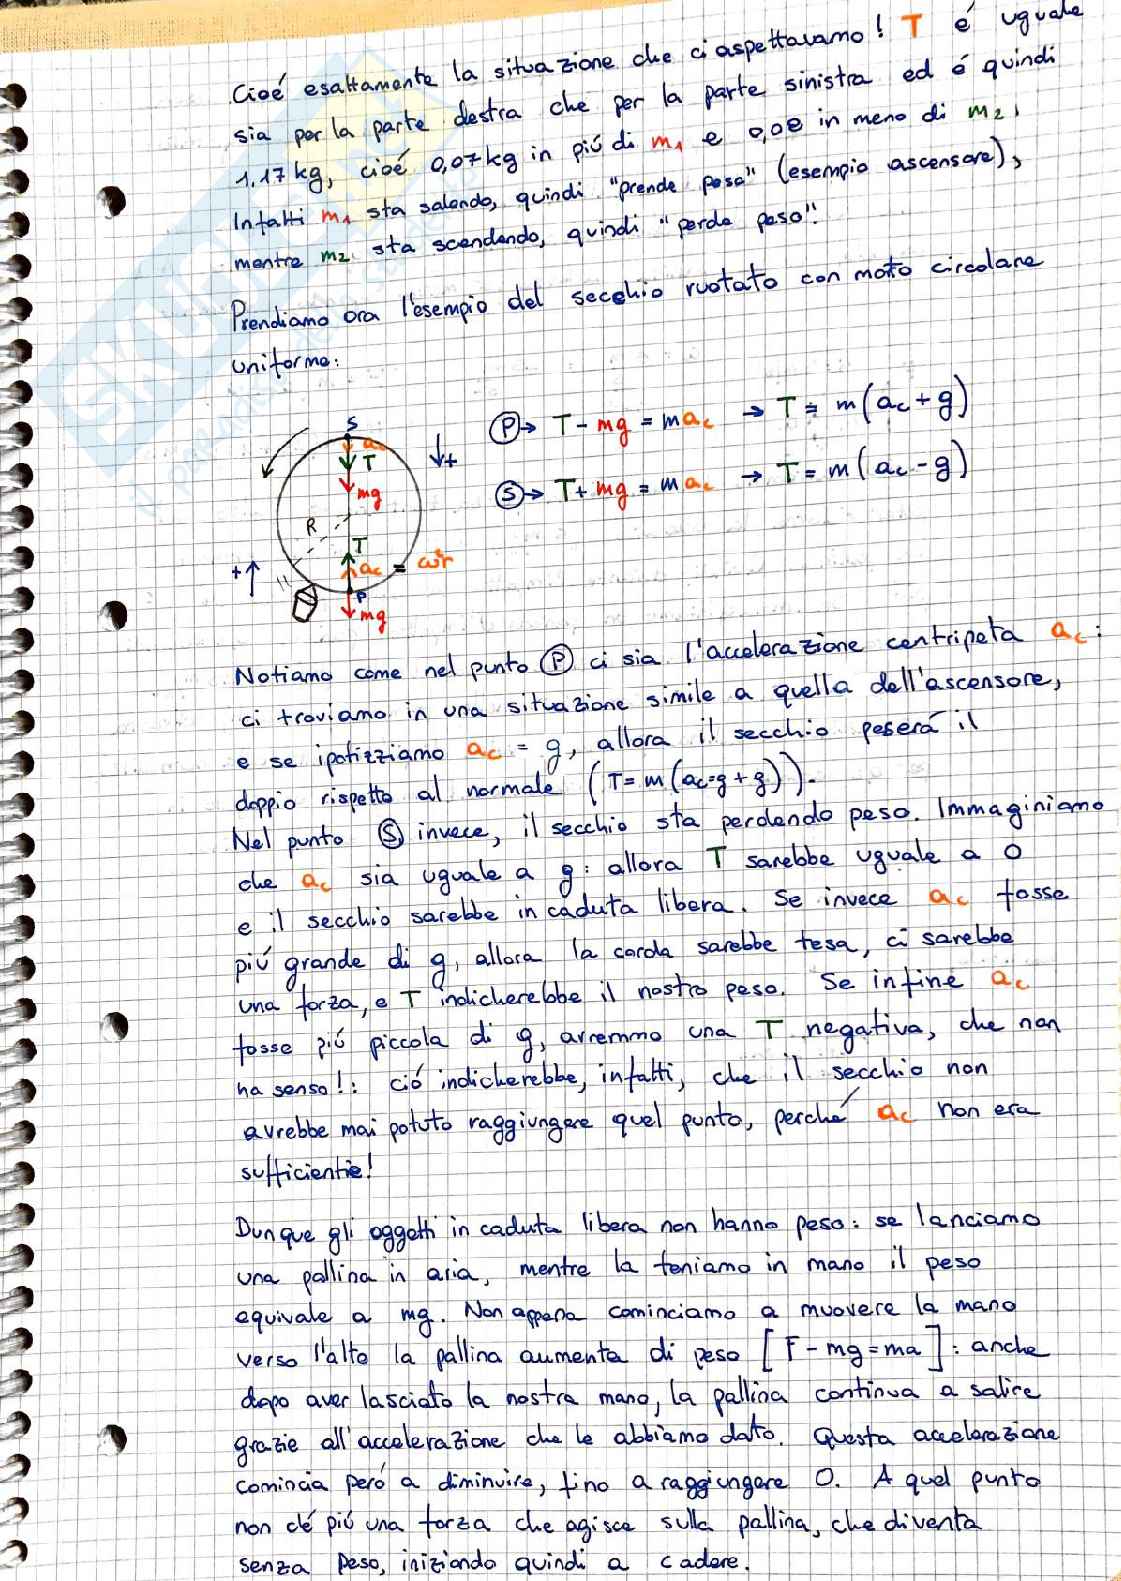 Cioé esattamente la situazione che ci aspettavamo! T é uguale
sia per la parte destra che per la parte sinistra ed é quindi
1,17 kg, cioé 0,07 kg in piú di m1 e 0,08 in meno di m2.
Infatti m1 sta salendo, quindi "prende peso" (esempio ascensore),
mentre m2 sta scendendo, quindi "perde peso".
Prendiamo ora l'esempio del secchio ruotato con moto circolare
uniforme:
P → T - mg = mac → T = m(ac + g)
S → T + mg = mac → T = m(ac - g)
S
ac
T
mg
+
R
T
ac = ω²r
+
P
mg
Notiamo come nel punto P ci sia l'accelerazione centripeta ac:
ci troviamo in una situazione simile a quella dell'ascensore,
e se ipotizziamo ac = g, allora il secchio peserá il
doppio rispetto al normale (T = m(ac=g + g)).
Nel punto S invece, il secchio sta perdendo peso. Immaginiamo
che ac sia uguale a g: allora T sarebbe uguale a 0
e il secchio sarebbe in caduta libera. Se invece ac fosse
piú grande di g, allora la corda sarebbe tesa, ci sarebbe
una forza, e T indicherebbe il nostro peso. Se infine ac
fosse piú piccola di g, avremmo una T negativa, che non
ha senso!: ció indicherebbe, infatti, che il secchio non
avrebbe mai potuto raggiungere quel punto, perché ac non era
sufficiente!
Dunque gli oggetti in caduta libera non hanno peso: se lanciamo
una pallina in aria, mentre la teniamo in mano il peso
equivale a mg. Non appena cominciamo a muovere la mano
verso l'alto la pallina aumenta di peso [F - mg = ma]: anche
dopo aver lasciato la nostra mano, la pallina continua a salire
grazie all'accelerazione che le abbiamo dato. Questa accelerazione
comincia peró a diminuire, fino a raggiungere 0. A quel punto
non c'é piú una forza che agisce sulla pallina, che diventa
senza peso, iniziando quindi a cadere.